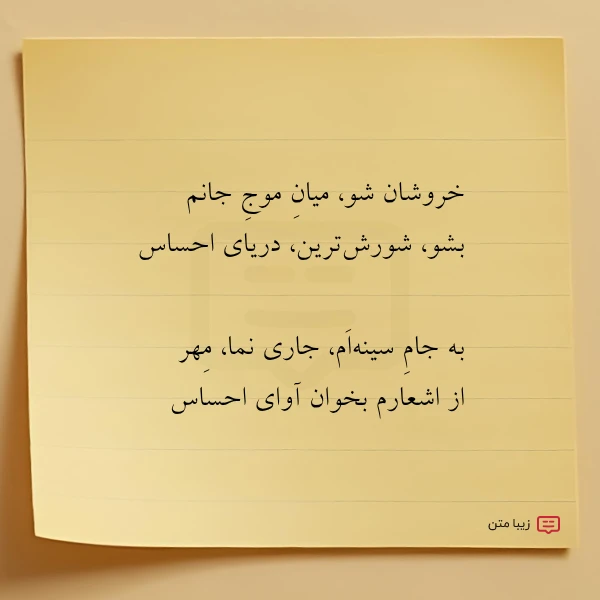 خروشان شو، میانِ موجِ جانم
بشو، شورش‌ترین، دریای احساس
به جامِ سینه‌اَم، جاری نما، مِهر
از اشعارم بخوان آوای احساس
زیبا متن